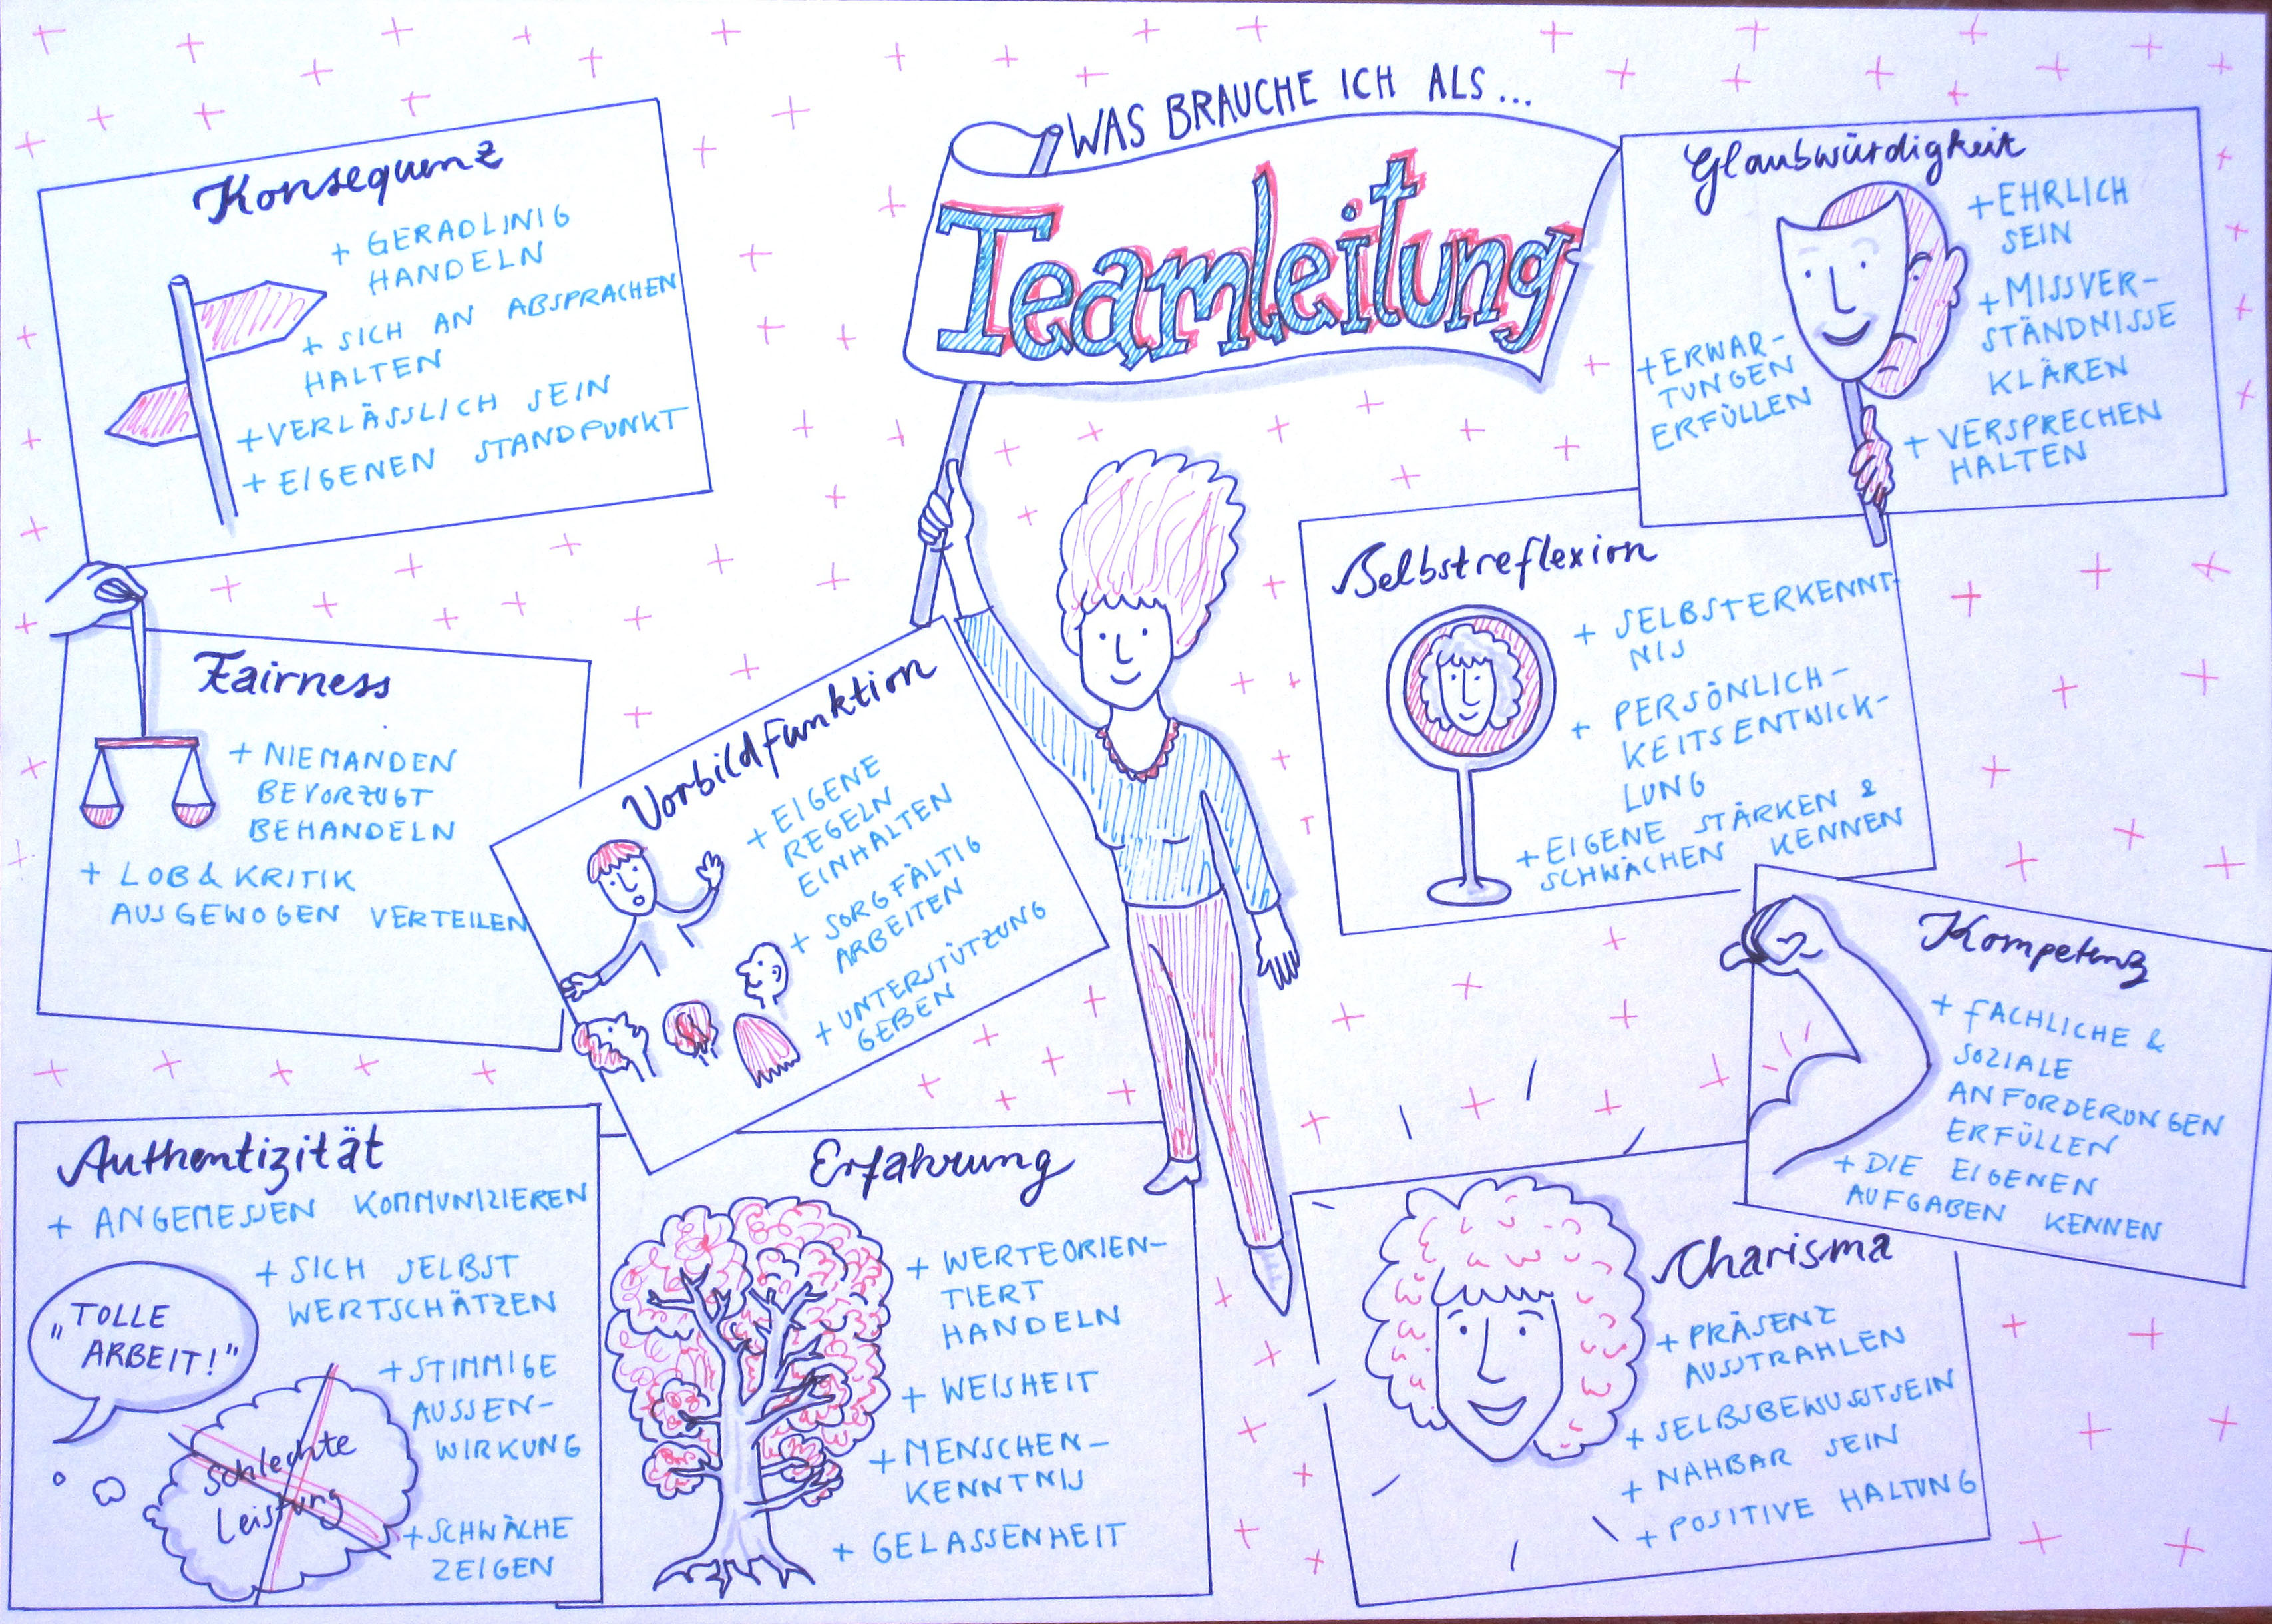 WAS BRAUCHE ICH ALS...
Teamleitung
Konsequenz
+ GERADLINIG
HANDELN
+ SICH AN ABSPRACHEN
HALTEN
+ VERLÄSSLICH SEIN
+ EIGENEN STANDPUNKT
Glaubwürdigkeit
+ EHRLICH
SEIN
+ MISSVER-
STÄNDNISSE
KLÄREN
+ VERSPRECHEN
HALTEN
+ ERWAR-
TUNGEN
ERFÜLLEN
Fairness
+ NIEMANDEN
BEVORZUGT
BEHANDELN
+ LOB & KRITIK
AUSGEWOGEN VERTEILEN
Vorbildfunktion
+ EIGENE
REGELN
EINHALTEN
+ SORGFÄLTIG
ARBEITEN
+ UNTERSTÜTZUNG
GEBEN
Selbstreflexion
+ SELBSTERKENNT-
NIS
+ PERSÖNLICH-
KEITSENTWICK-
LUNG
+ EIGENE STÄRKEN &
SCHWÄCHEN KENNEN
Kompetenz
+ FACHLICHE &
SOZIALE
ANFORDERUNGEN
ERFÜLLEN
+ DIE EIGENEN
AUFGABEN KENNEN
Authentizität
+ ANGEMESSEN KOMMUNIZIEREN
+ SICH SELBST
WERTSCHÄTZEN
"TOLLE
ARBEIT!"
+ STIMMIGE
AUSSEN-
WIRKUNG
Schlechte
Leistung
+ SCHWÄCHE
ZEIGEN
Erfahrung
+ WERTEORIEN-
TIERT
HANDELN
+ WEISHEIT
+ MENSCHEN-
KENNTNIS
+ GELASSENHEIT
Charisma
+ PRÄSENZ
AUSSTRAHLEN
+ SELBSBEWUSSTSEIN
+ NAHBAR SEIN
+ POSITIVE HALTUNG